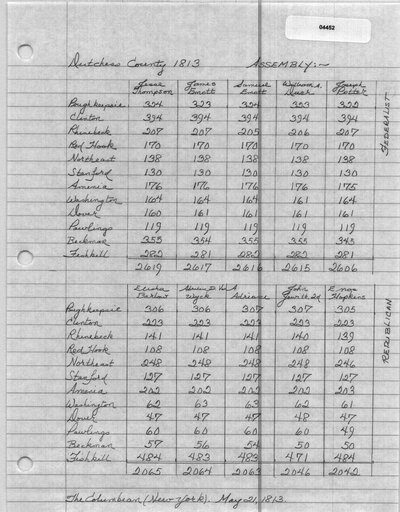 04452
Dutchess County 1813 ASSEMBLY:~
Jesse Thompson James Emott Samuel Emott William A. Duer Joseph Potter
Poughkeepsie 324 323 324 323 322
Clinton 394 394 394 394 394
Rhinebeck 207 207 205 206 207
Red Hook 170 170 170 170 170
Northeast 138 138 138 138 138
Stanford 130 130 130 130 130
Amenia 176 176 176 176 175
Washington 164 164 164 161 164
Dover 160 161 161 161 161
Pawlings 119 119 119 119 119
Beekman 355 354 355 355 345
Fishkill 282 281 282 282 281
2619 2617 2616 2615 2606
FEDERALIST
Elisha Barlow Wyck Adriance John 2d Enos Hopkins
Poughkeepsie 306 306 307 307 305
Clinton 223 223 223 223 223
Rhinebeck 141 141 141 140 139
Red Hook 108 108 108 108 108
Northeast 248 248 248 248 246
Stanford 127 127 127 127 127
Amenia 202 202 202 202 203
Washington 62 63 63 62 61
Dover 47 47 47 48 47
Pawlings 60 60 60 60 49
Beekman 57 56 54 50 50
Fishkill 484 483 483 471 484
2065 2064 2063 2046 2042
REPUBLICAN
The Columbian (New York). May 21, 1813.